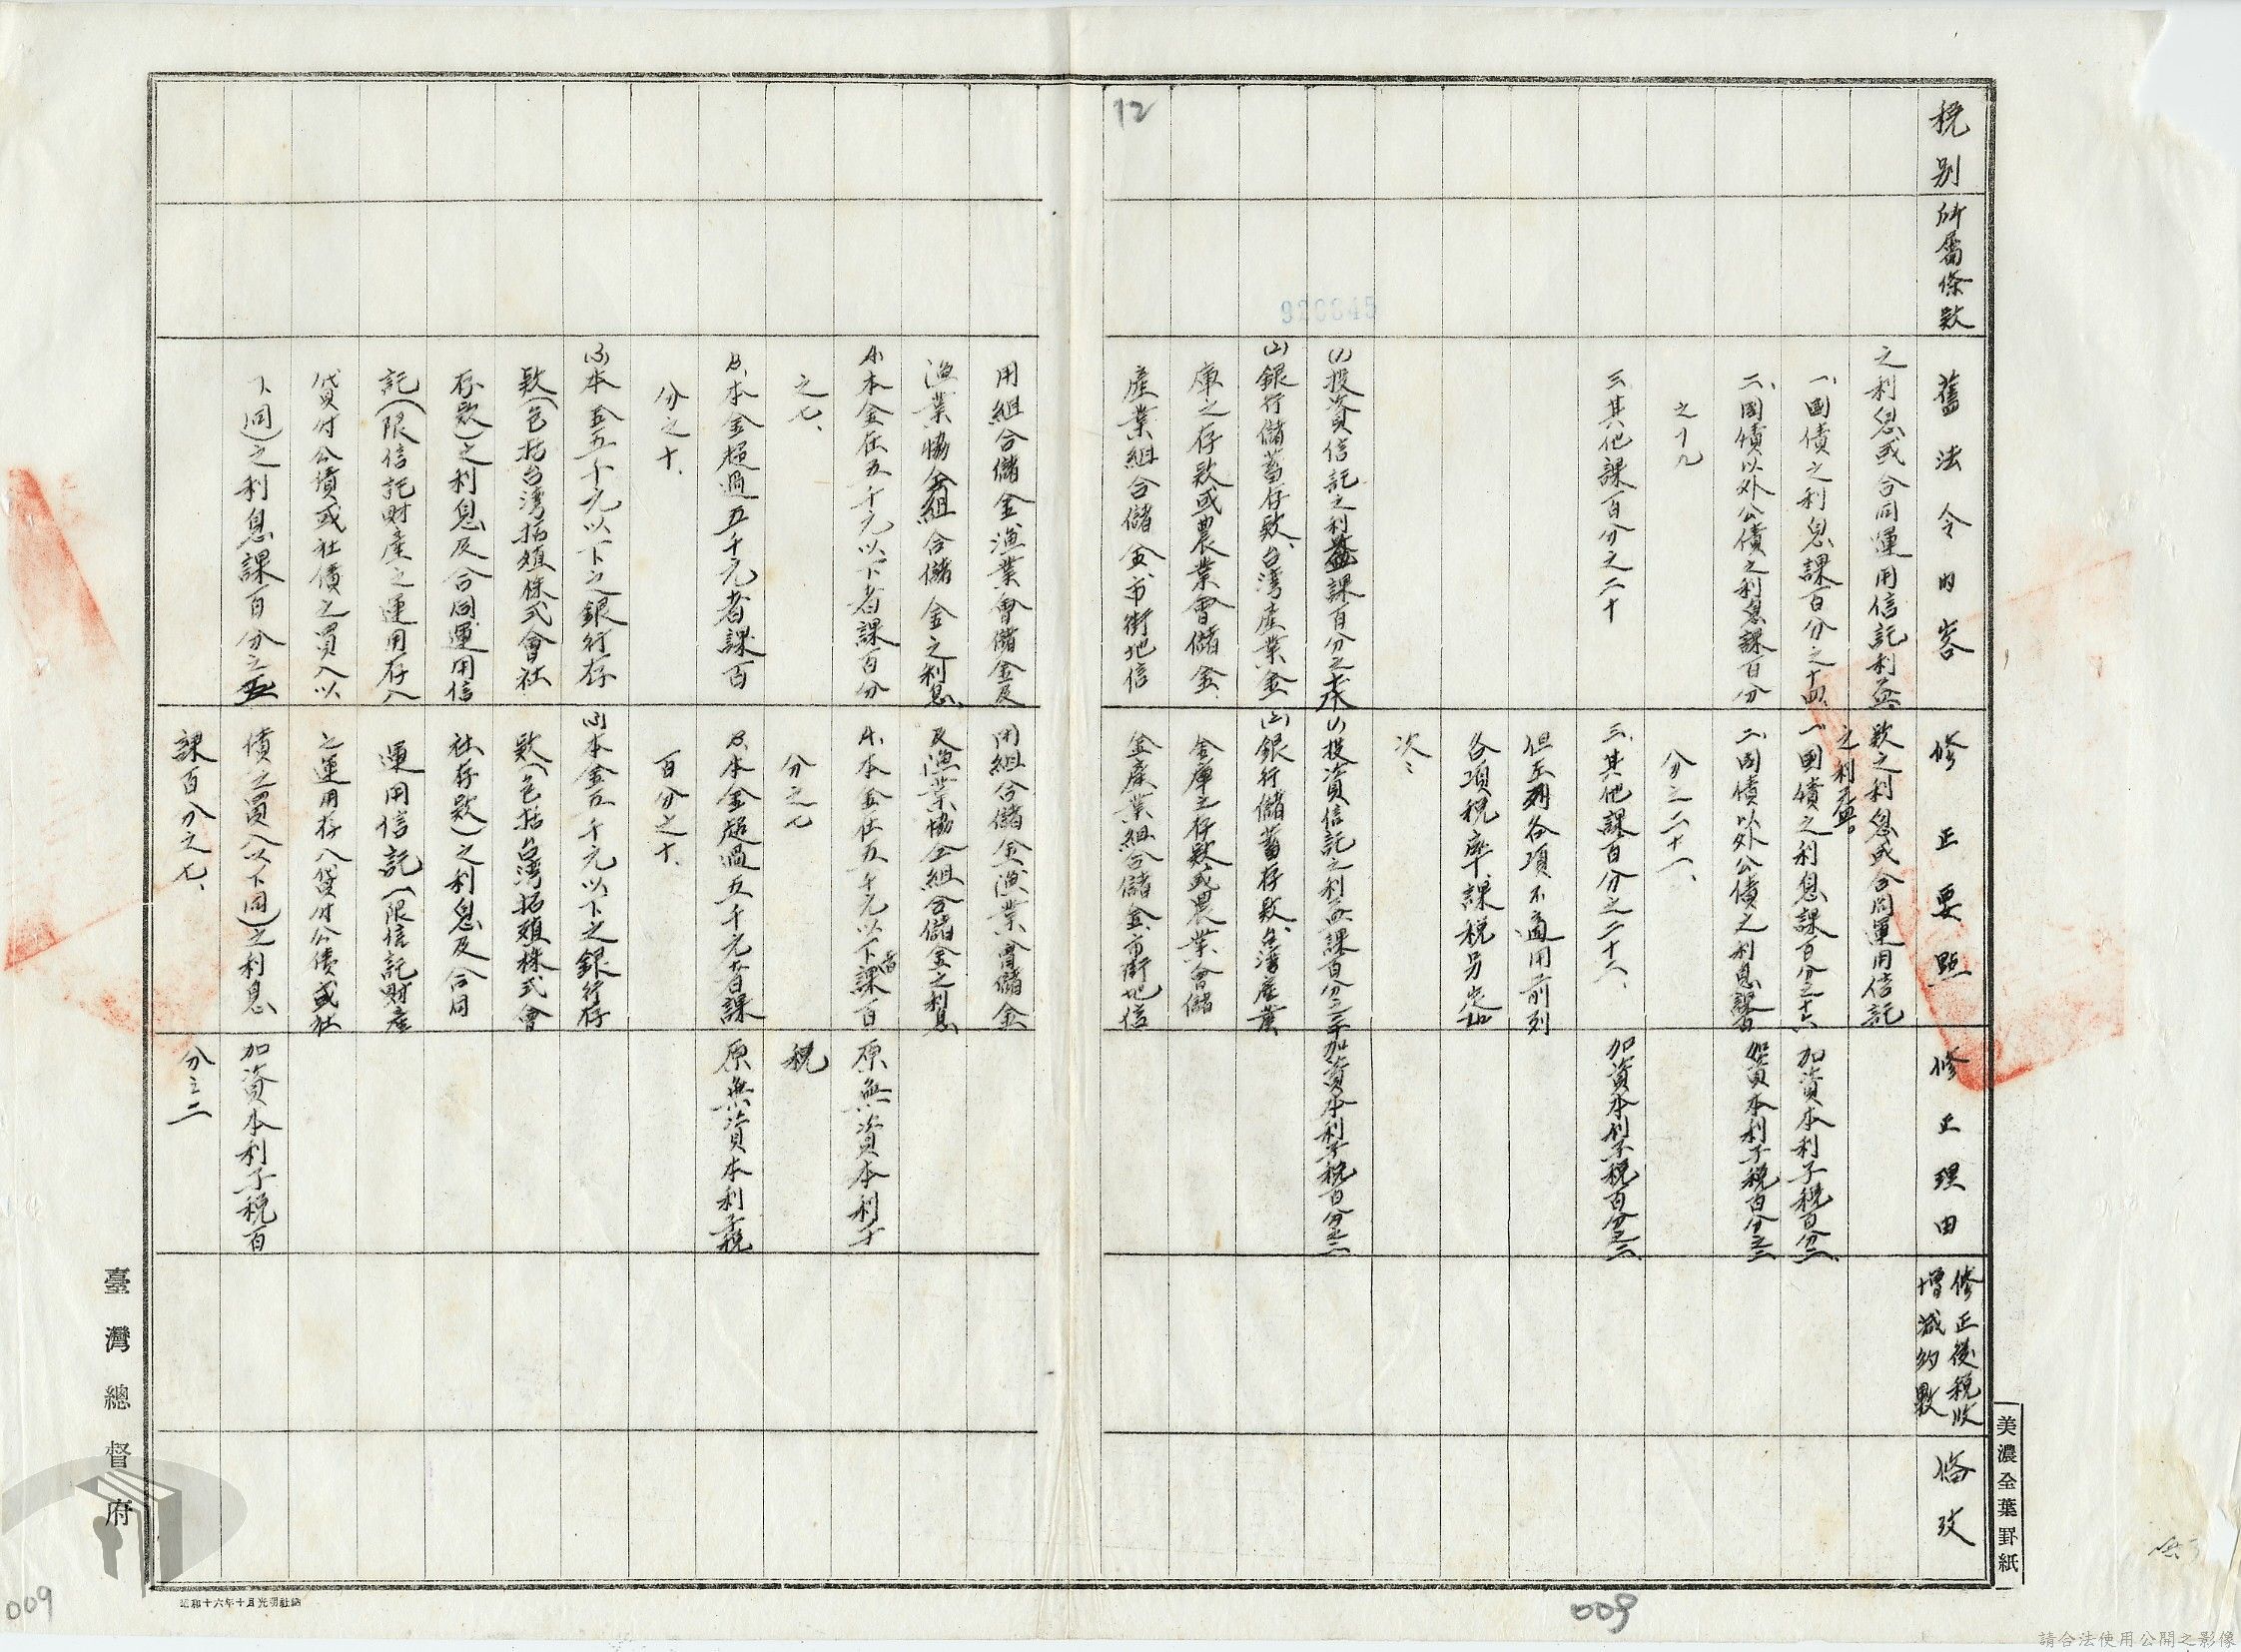 稅別
所屬條款
舊法令內容
修正要點
修正理由
修正後稅收
增減約數
備考
之利息或合同運用信託利益、
一、國債之利息課百分之十四、
二、國債以外公債之利息課百分
之十九
三、其他課百分之二十
(1)投資信託之利益課百分之十八
(2)銀行儲蓄存款、台湾產業金
庫之存款或農業會儲金、
產業組合儲金、市街地信
用組合儲金漁業會儲金及
漁業協會組合儲金之利息、
A、本金在五千元以下者課百分
之七、
B、本金超過五千元者課百
分之十、
(3)本金五千元以下之銀行存
款(包括台湾拓殖株式會社
存款)之利息及合同運用信
託(限信託財產之運用存入
貸付公債或社債之買入以
下同)之利息課百分之五
款之利息或合同運用信託
之利益、
一、國債之利息課百分之十六
二、國債以外公債之利息課百
分之二十一、
三、其他課百分之二十二、
但左列各項不適用前列
各項稅率、課稅另定如
次:
(1)投資信託之利益課百分之二十
(2)銀行儲蓄存款、台湾產業
金庫之存款或農業會儲
金產業組合儲金、市街地信
用組合儲金漁業會儲金
及漁業協會組合儲金之利息
A、本金在五千元以下者課百
分之七
B、本金超過五千元者課
百分之十、
(3)本金五千元以下之銀行存
款(包括台湾拓殖株式會
社存款)之利息及合同
運用信託(限信託財產
之運用存入貸付公債或社
債之買入以下同)之利息
課百分之七、
加資本利子稅百分二、
加資本利子稅百分之二
加資本利子稅百分之二
加資本利子稅百分之二
原無資本利子
稅
原無資本利子稅
加資本利子稅百
分之二
12
美濃全葉罫紙
臺灣總督府
昭和十六年十月光明社納
009
009
請合法使用公開之影像